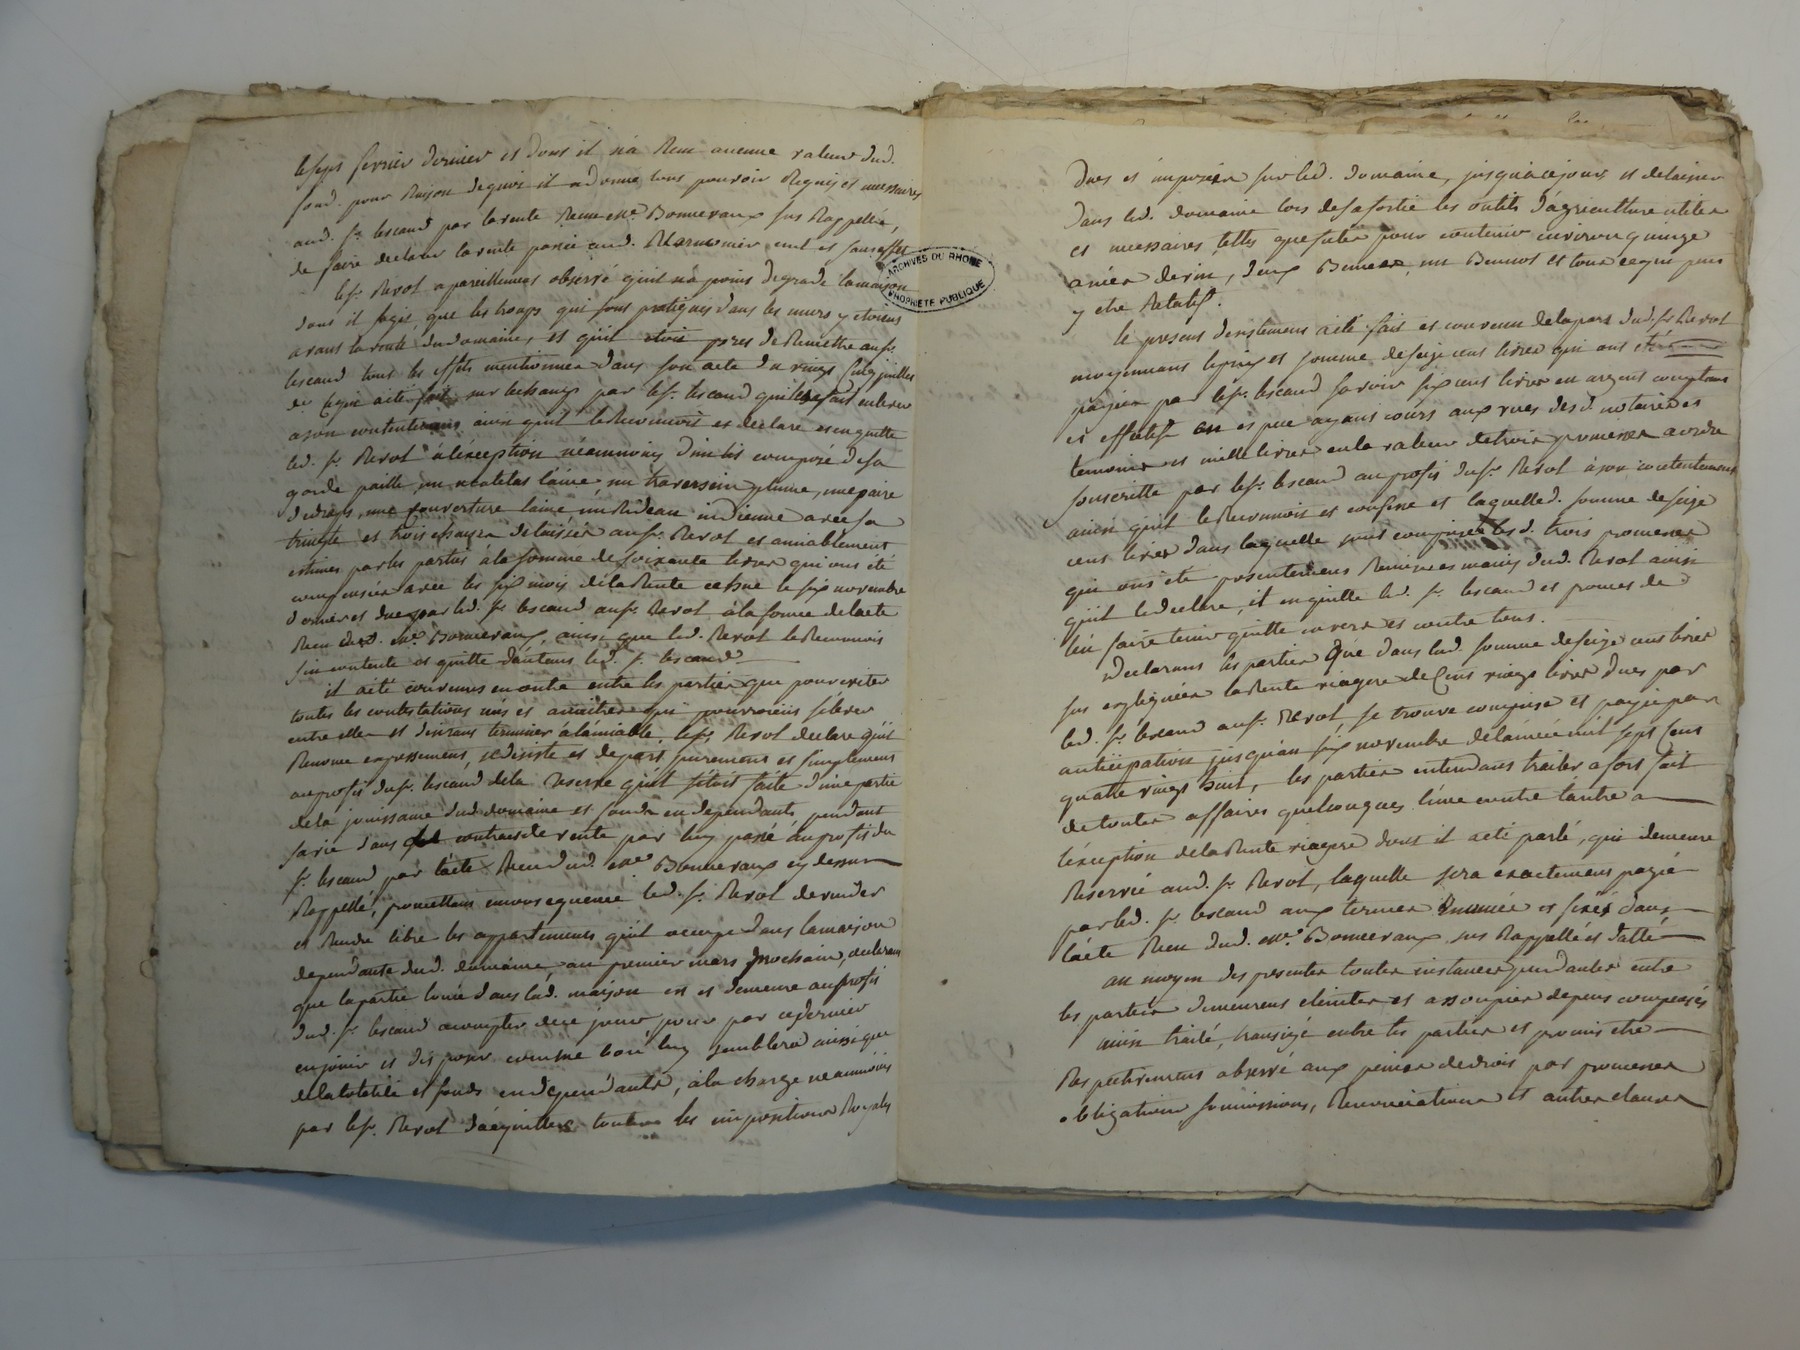 le sept fevrier dernier et dont il n'a Recu aucune valeur dud.
fond. pour Raison dequoi il a donné tous pouvoir Requis et necessaires
aud. sr. lescaud par la vente Recue Me. Bonnevaux sus Rappellée,
de faire declarer la vente passée aud. nul et sans effet
le sr. Revol a pareillement observé qu'il n'a point degradé la maison
dont il s'agit, que les troups qui sont pratiqués dans les murs y etoient
avant la vente dudomaine, et qu'il etoit prest de Remettre au sr.
lescaud tous les effets mentionnés dans son acte du vingt cinq juillet
de ce qui a été fait sur lechamp par le sr. lescaud qui les a fait enlever
a son contentement ainsi qu'il le Reconnoit et declare et en quitte
led. sr. Revol à l'exception néammoins d'un lit composé de sa
garde paille, un matelas laine, un traversin plume, une paire
de draps, une couverture laine, un Rideau indienne avec sa
tringle et trois delaissés au sr. Revol et amiablement
estimés par les parties à la somme de soixante livres qui ont été
compensées avec les six mois de la Rente echue le six novembre
dernier et dues par led. sr. lescaud au sr. Revol à la forme de l'acte
Recu dud. Me. Bonnevaux, ainsi que led. Revol le Reconnois
s'en contente et quitte d'autant led. sr. lescaud
il a été convenus en outre entre les parties que pour eviter
toutes les contestations nées et a naitre qui pourroient s'élever
entre elles et desirans terminer à l'amiable, le sr. Revol declare qu'il
Renonce expressement, se desiste et depart purement et simplement
au profit du sr. lescaud de la Reserve qu'il s'étoit faite d'une partie
de la jouissance dud. domaine et fonds en dependants pendant
sa vie dans contract de vente par luy passé au profit du
sr. lescaud par l'acte Recu dud. Me. Bonnevaux cy dessus
Rappellé, promettant en consequence led. sr. Revol de vuider
et Rendre libre les appartements qu'il occupe dans la maison
dependante dud. domaine, au premier mars prochain, declarant
que la partie louée dans lad. maison est et demeure au profit
dud. sr. lescaud a compter de ce jour, pour par ce dernier
en jouir et disposer comme bon luy semblera ainsi que
de la totalité et fonds en dependants, à la charge néammoins
par le sr. Revol d'acquitter toutes les impositions Royales
ARCHIVES DU RHONE
PROPRIETE PUBLIQUE
Dues et imposées sur led. domaine, jusqu'à ce jour, et delaisser
dans led. domaine lors de sa sortie les outils d'agriculture utiles
et necessaires, telles que futes pour contenir environ quinze
anées de vin, deux Bennes, un Bennot et tout ce qui peut
y etre Relatif.
le present desistement a été fait et convenu de la part dud. sr. Revol
moyennant le prix et somme de seize cent livres qui ont été
payées par le sr. lescaud savoir six cent livres en argent comptant
et effectif en espece ayant cours aux vues desd. notaires et
temoins et mille livres en la valeur de trois promesses a ordre
souscritte par le sr. lescaud au profit du sr. Revol à son contentement
ainsi qu'il le Reconnois et confesse et laquelle d. somme de seize
cent livres dans laquelle sont comprises lesd. trois promesses
qui ont été presentement Remises es mains dud. Revol ainsi
qu'il le declare, il en quitte led. sr. lescaud et promet de
l'en faire tenir quitte envers et contre tous.
Declarant les parties que dans lad. somme de seize cent livres
sus expliquées la Rente viagere de Cent vingt livres dues par
led. sr. lescaud au sr. Revol, se trouve comprise et payée par
anticipation jusqu'au six novembre de l'année mil sept cent
quatre vingt huit, les parties entendant traiter a fort fait
de toutes affaires quelconques l'une contre l'autre a
l'exception de la Rente viagere dont il a été parlé, qui demeure
Reservée aud. sr. Revol, laquelle sera exactement payée
par led. sr. lescaud aux termes et fixés dans
l'acte Recu dud. Me. Bonnevaux sus Rappellé et datté
au moyen des presentes toutes instances pendantes entre
les parties demeurent eteintes et assoupies depens compensés
ainsi traité, transigé entre les parties et promis etre
Respectivement observé aux peines de droit par promesses
obligations soumissions, Renonciations et autres clauses